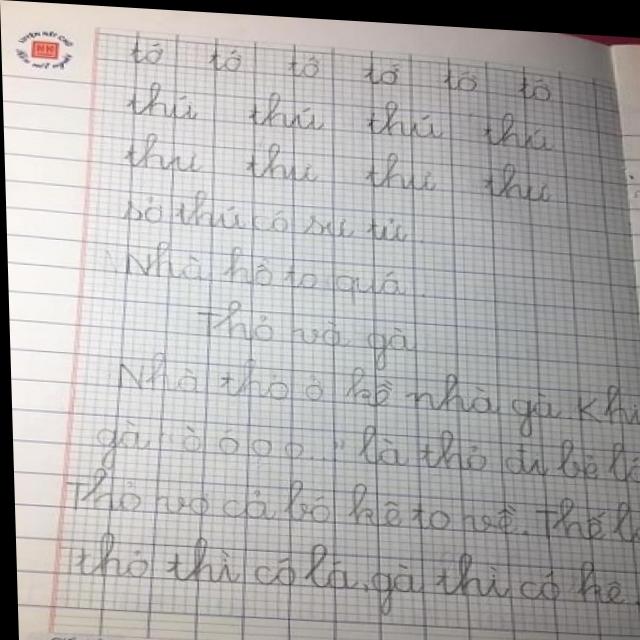 tổ tổ tổ tổ tổ tổ
thú thú thú thú
thư thư thư thư
sở thú có sư tử.
Nhà hê to quá.
Thỏ và gà
Nhà thỏ ở kề nhà gà. Khi
gà "ò ó o o..." là thỏ đi bẻ
Thỏ vơ cả bó kê to về. Thế
thỏ thì có lá, gà thì có kê.